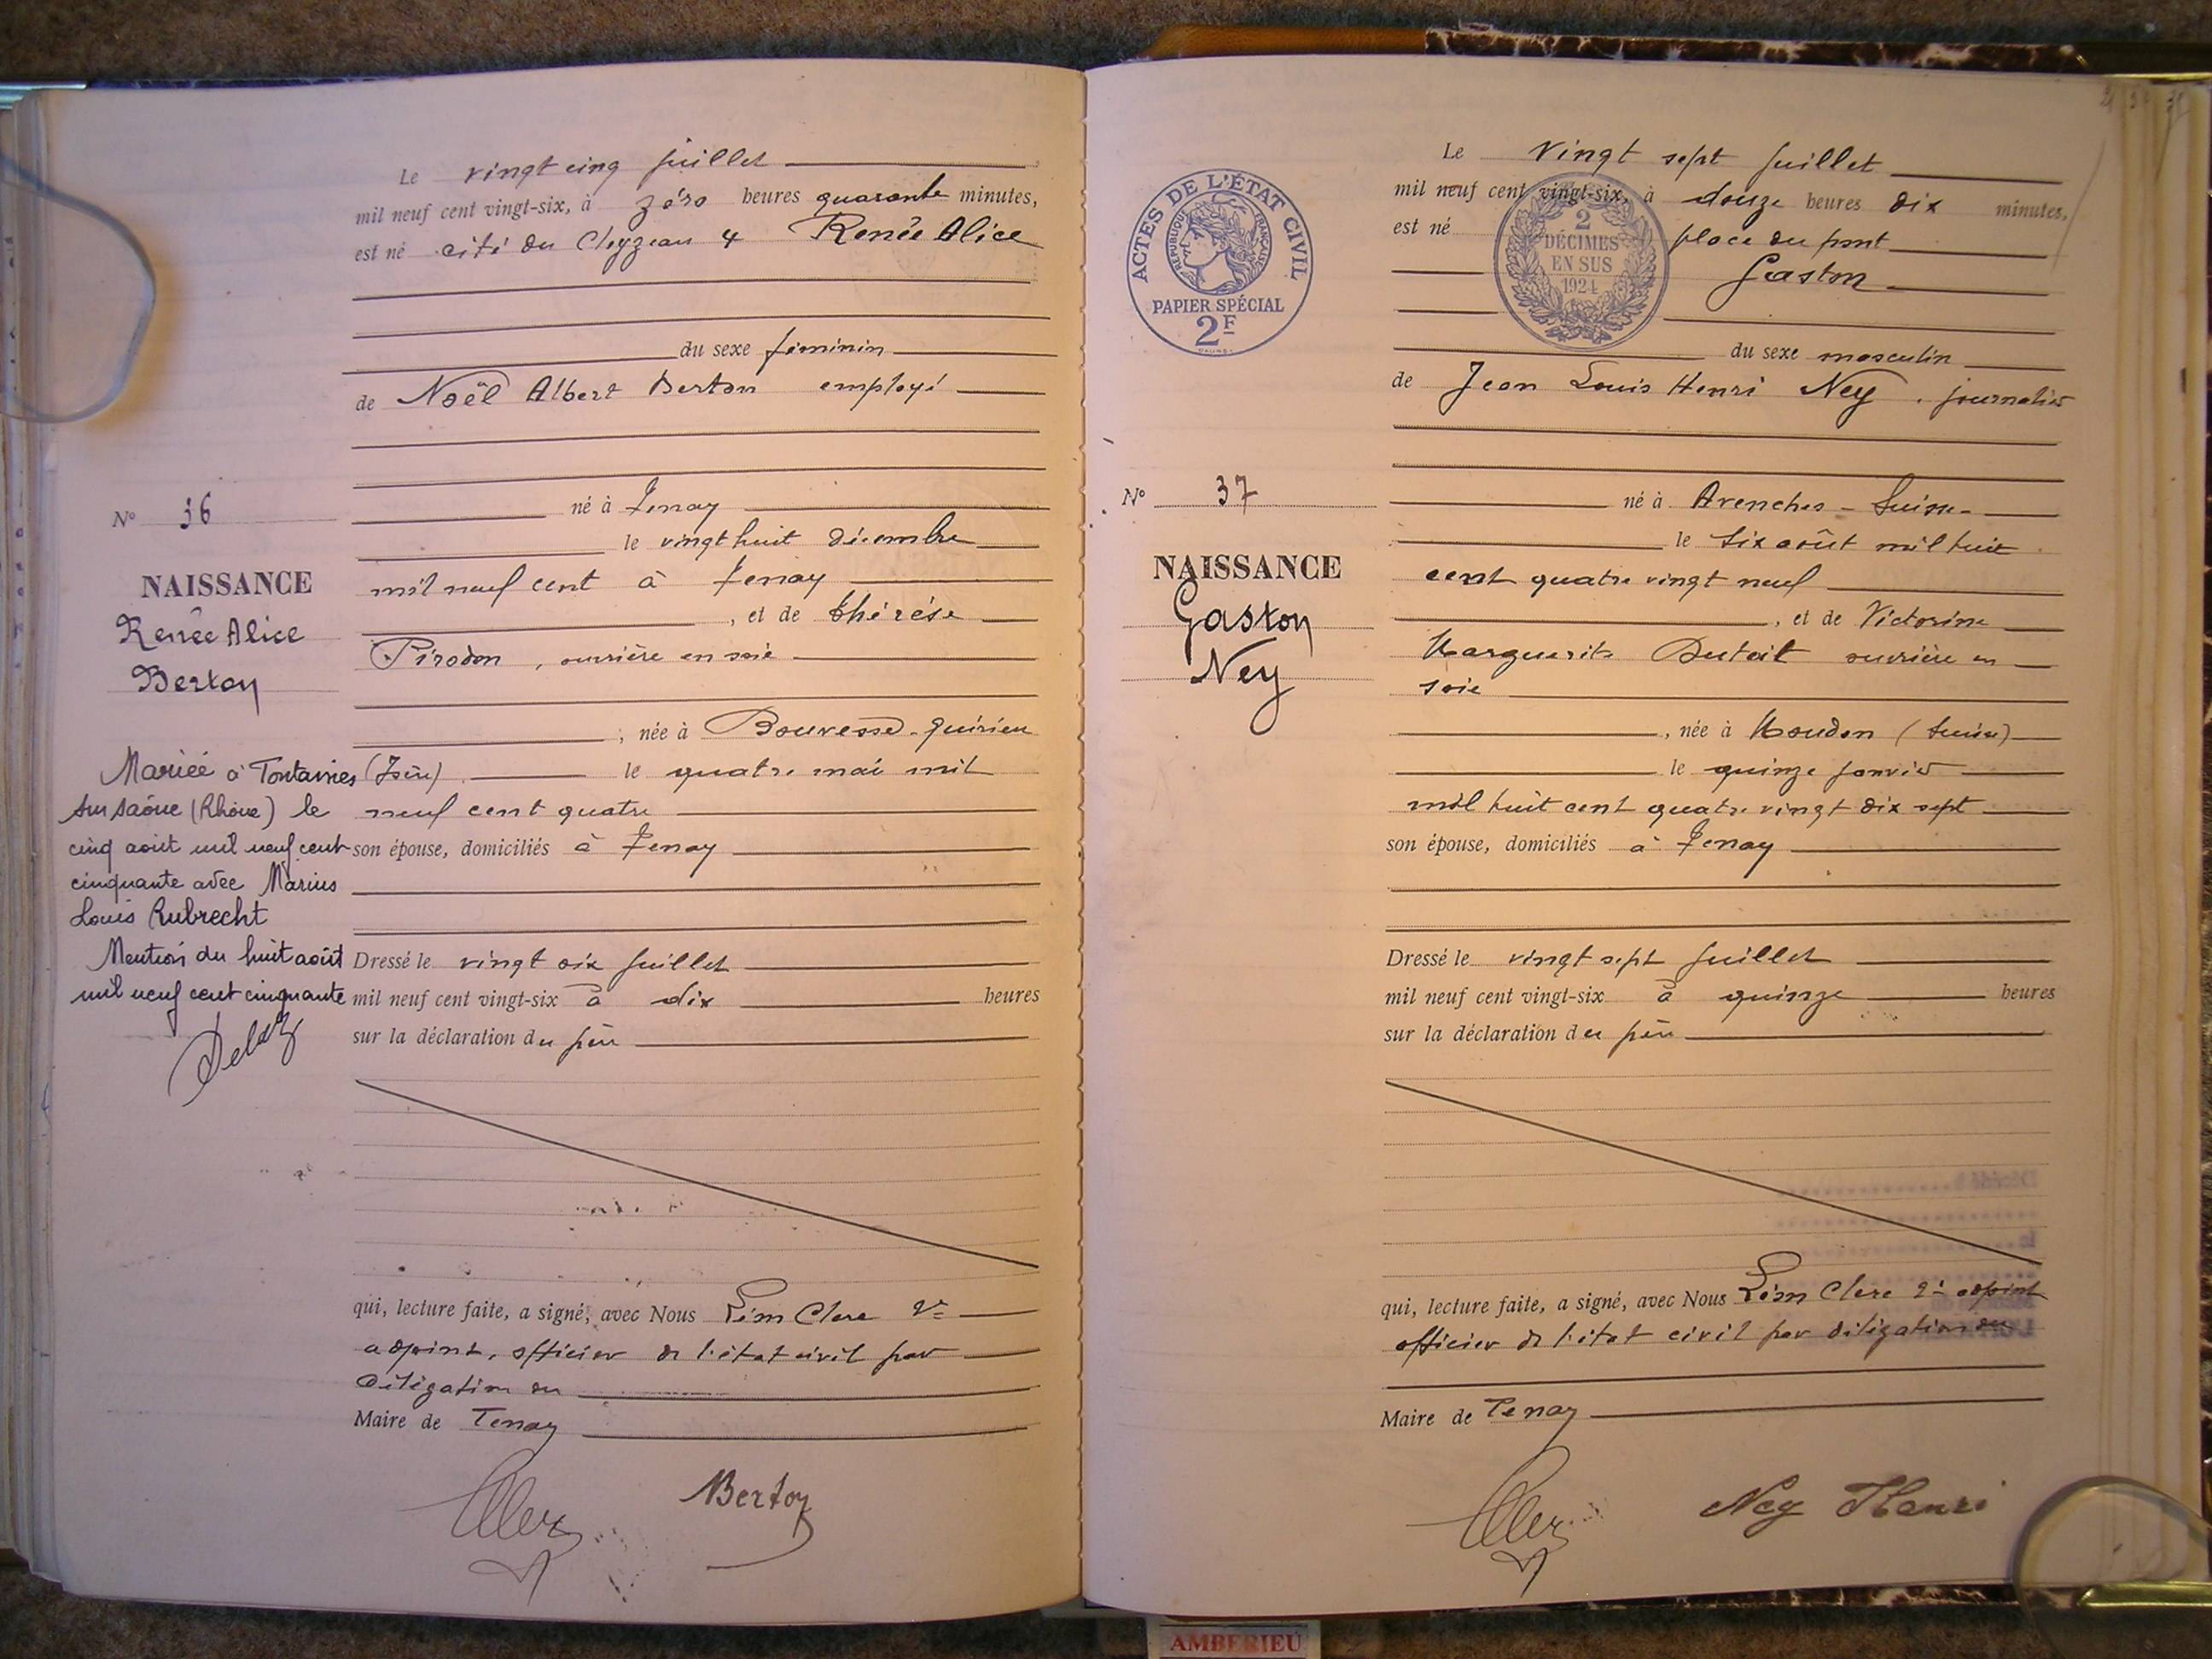 Le vingt cinq juillet
mil neuf cent vingt-six, à zéro heures quarante minutes,
est né cité du Cleyzeau 4 Renée Alice
du sexe féminin
de Noël Albert Berton employé
né à Tenay
le vingt huit décembre
mil neuf cent à Tenay
, et de Thérèse
Pirodon, ouvrière en soie
, née à Bouvesse-Quirieu
(Isère) le quatre mai mil
neuf cent quatre
son épouse, domiciliés à Tenay
Dressé le vingt six juillet
mil neuf cent vingt-six à dix heures
sur la déclaration du père
qui, lecture faite, a signé, avec Nous Léon Clerc 2e
adjoint, officier de l'état civil par
délégation du
Maire de Tenay
Berton
No 36
NAISSANCE
Renée Alice
Berton
Mariée à Fontaines
sur Saône (Rhône) le
cinq août mil neuf cent
cinquante avec Marius
Louis Rubrecht
Mention du huit août
mil neuf cent cinquante
Le vingt sept juillet
mil neuf cent vingt-six, à douze heures dix minutes,
est né place du pont
Gaston
du sexe masculin
de Jean Louis Henri Ney, journalier
né à Avenches - Suisse
le six août mil huit
cent quatre vingt neuf
, et de Victorine
Marguerite Dutoit ouvrière en
soie
, née à Moudon (Suisse)
le quinze janvier
mil huit cent quatre vingt dix sept
son épouse, domiciliés à Tenay
Dressé le vingt sept juillet
mil neuf cent vingt-six à quinze heures
sur la déclaration du père
qui, lecture faite, a signé, avec Nous Léon Clerc 2e adjoint
officier de l'état civil par délégation du
Maire de Tenay
Ney Henri
ACTES DE L'ÉTAT CIVIL
RÉPUBLIQUE FRANÇAISE
PAPIER SPÉCIAL
2F
2
DÉCIMES
EN SUS
1924
No 37
NAISSANCE
Gaston
Ney
AMBERIEU